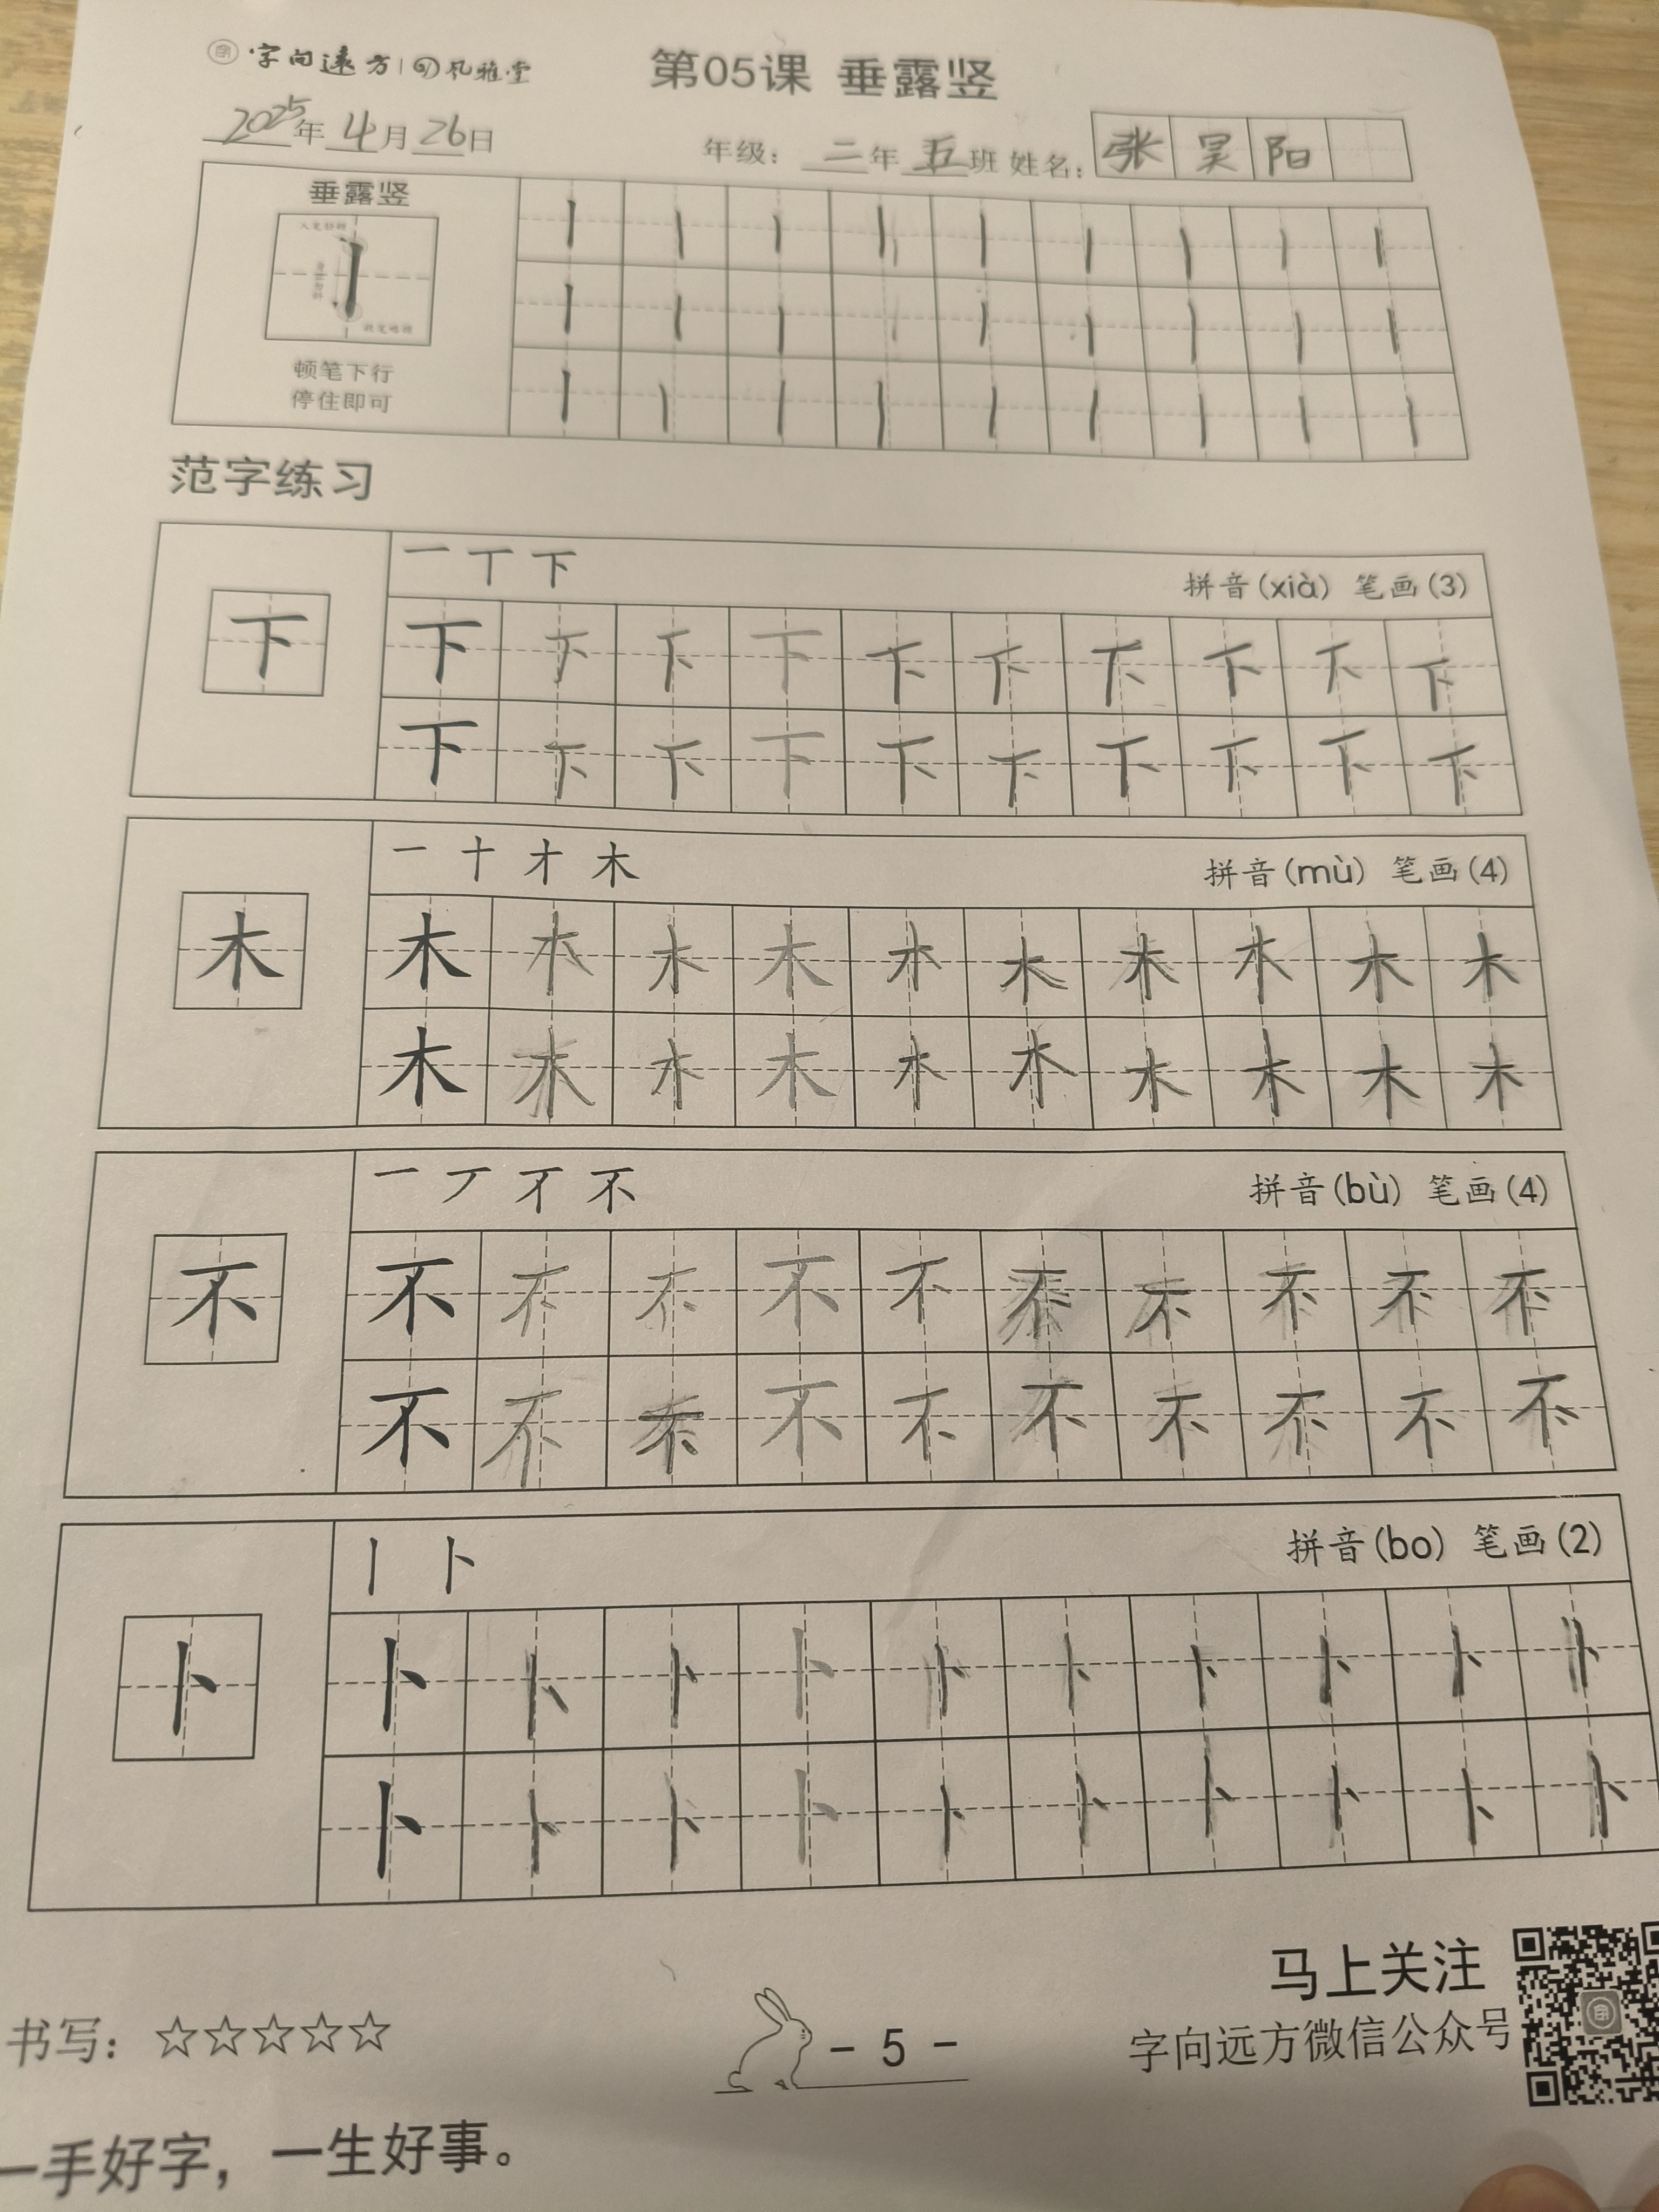 字向远方 | 风雅堂
第05课 垂露竖
2025年 4月 26日
年级： 二年 五班 姓名： 张 昊 阳
垂露竖
顿笔下行
停住即可
范字练习
一 丅 下
拼音(xià) 笔画(3)
下 下 下 下 下 下 下 下 下 下 下
下 下 下 下 下 下 下 下 下 下
一 十 才 木
拼音(mù) 笔画(4)
木 木 木 木 木 木 木 木 木 木 木
木 木 木 木 木 木 木 木 木 木
一 丆 不
拼音(bù) 笔画(4)
不 不 不 不 不 不 不 不 不 不 不
不 不 不 不 不 不 不 不 不 不
丨 卜
拼音(bo) 笔画(2)
卜 卜 卜 卜 卜 卜 卜 卜 卜 卜 卜
卜 卜 卜 卜 卜 卜 卜 卜 卜 卜
书写：☆☆☆☆☆
- 5 -
马上关注
字向远方微信公众号
一手好字，一生好事。